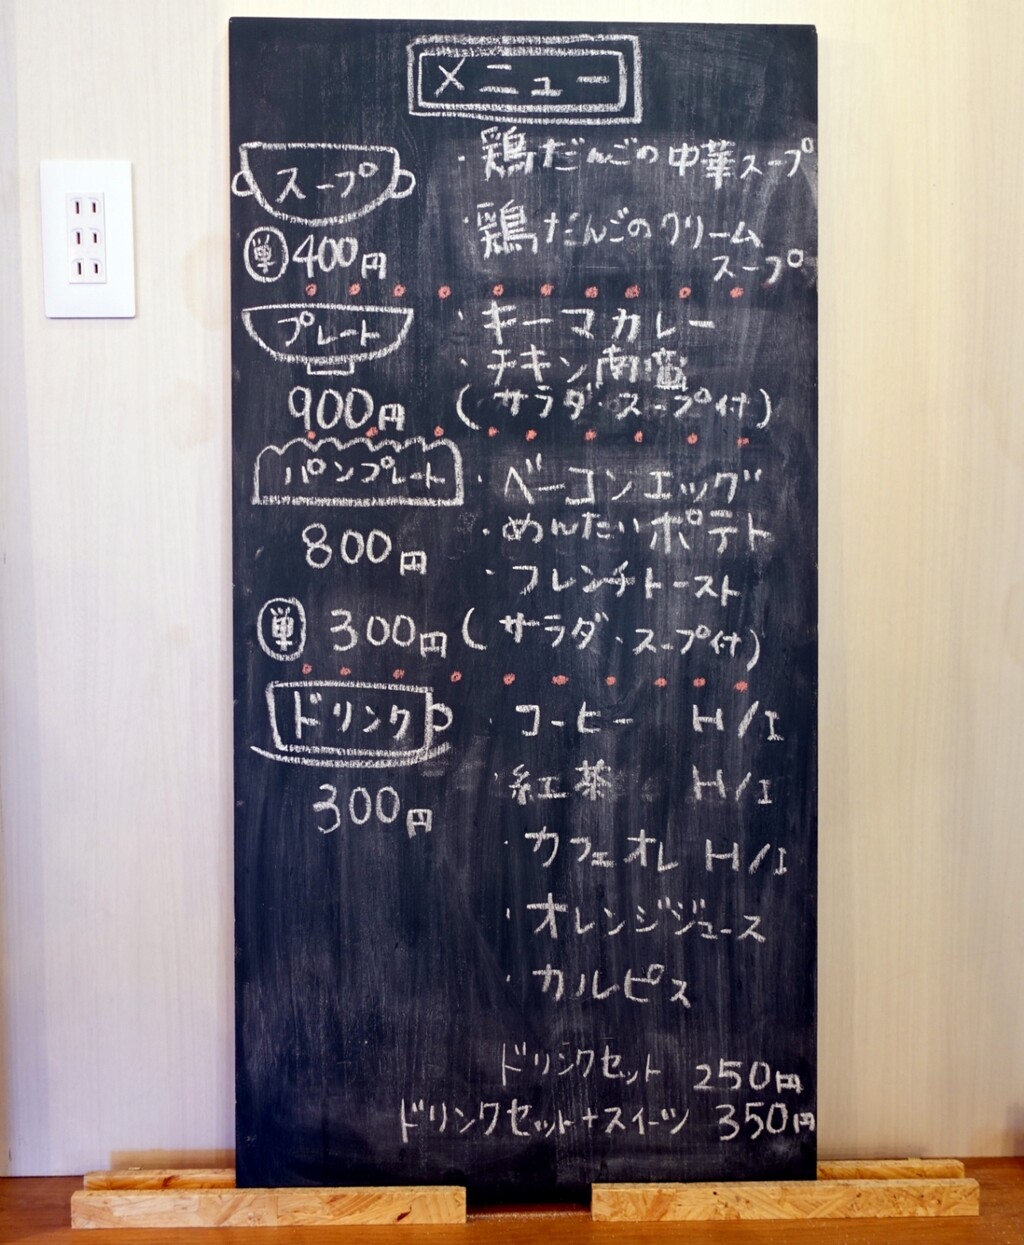 メニュー
スープ
・鶏だんごの中華スープ
単 400円
・鶏だんごのクリーム
スープ
プレート
・キーマカレー
・チキン南蛮
900円
(サラダ・スープ付)
パンプレート
・ベーコンエッグ
・めんたいポテト
800円
・フレンチトースト
単 300円
(サラダ・スープ付)
ドリンク
・コーヒー H/I
・紅茶 H/I
300円
・カフェオレ H/I
・オレンジジュース
・カルピス
ドリンクセット 250円
ドリンクセット+スイーツ 350円